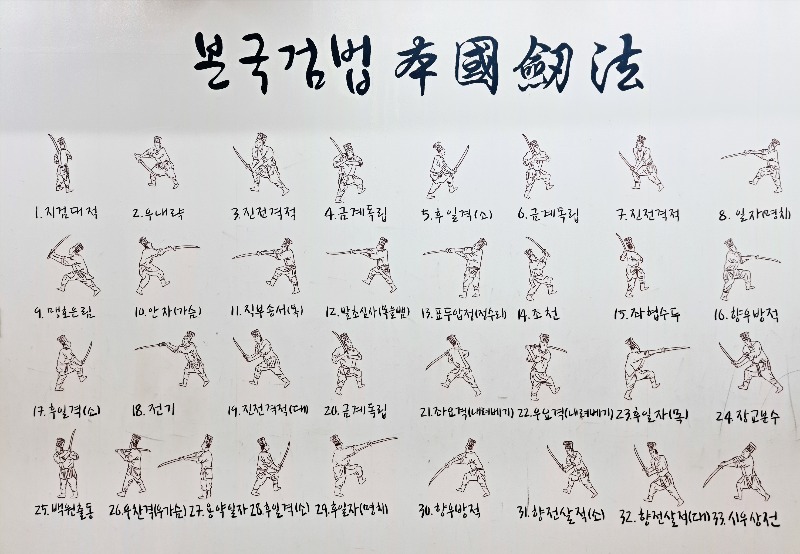 본국검법 本國劒法
1. 지검대적 2. 우내략 3. 진전격적 4. 금계독립 5. 후일격(소) 6. 금계독립 7. 진전격적 8. 일자(명치)
9. 맹호은림 10. 안자(가슴) 11. 직부송서(목) 12. 발초심사(목울뱀) 13. 표두압정(정수리) 14. 조천 15. 좌협수두 16. 향우방적
17. 후일격(소) 18. 전기 19. 진전격적(대) 20. 금계독립 21. 좌요격(내려베기) 22. 우요격(내려베기) 23. 후일자(목) 24. 장교분수
25. 백원출동 26. 우찬격(우가슴) 27. 용약일자 28. 후일격(소) 29. 후일자(명치) 30. 향우방적 31. 향전살적(소) 32. 향전살적(대) 33. 시우상전